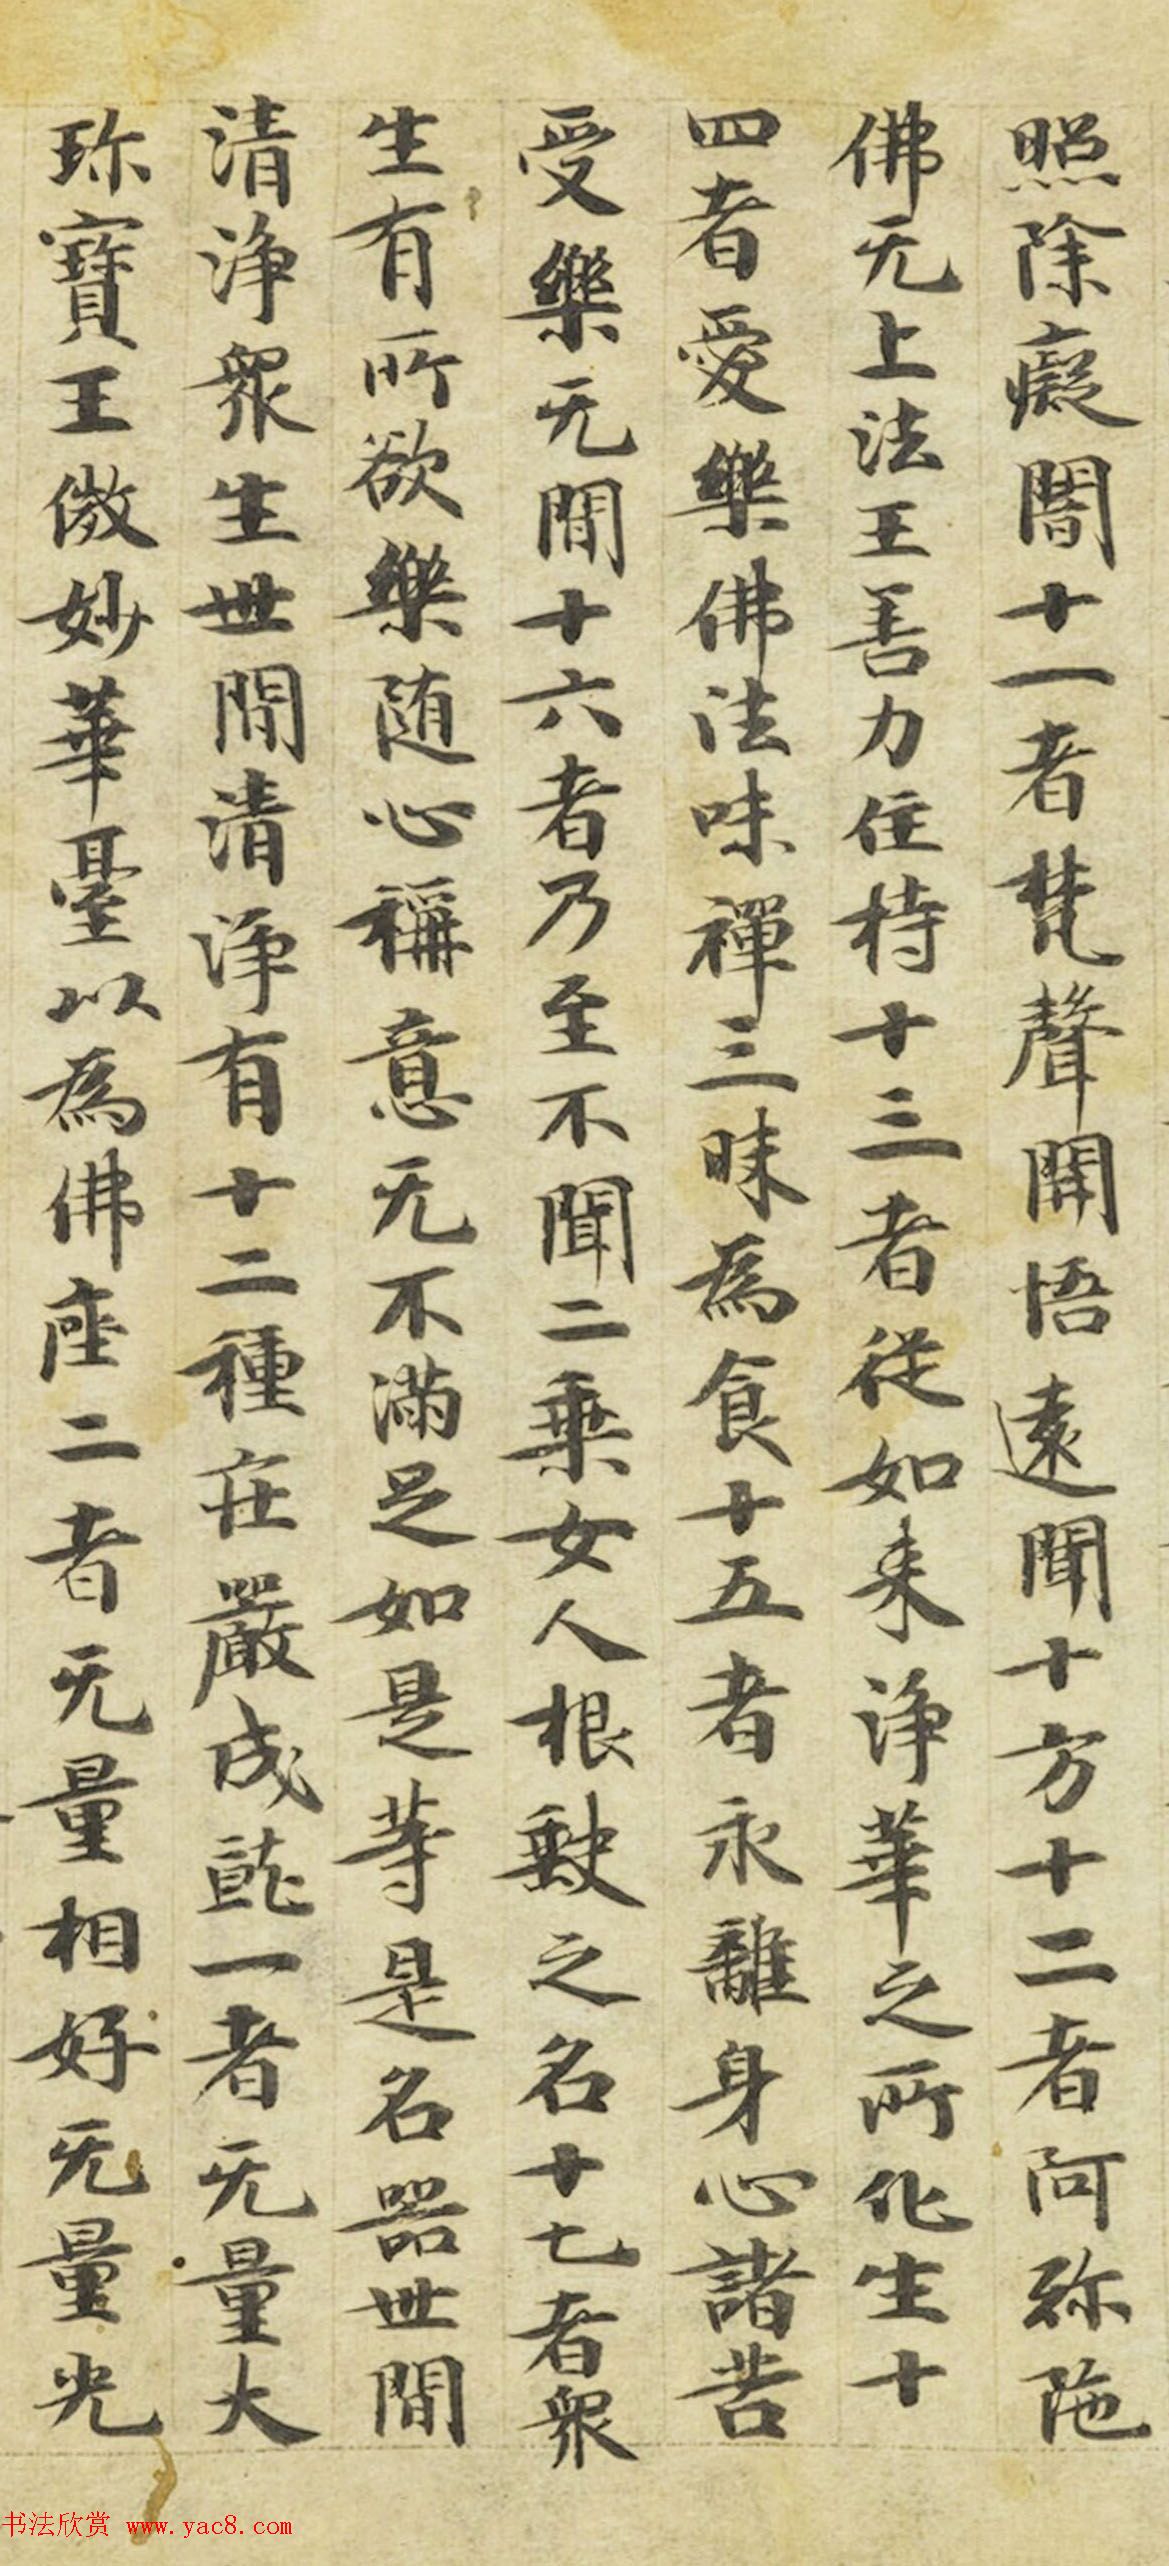 照除癡闇十一者梵聲開悟遠聞十方十二者阿弥陁
佛无上法王善力住持十三者従如来浄華之所化生十
四者愛樂佛法味禪三昧為食十五者永離身心諸苦
受樂无間十六者乃至不聞二乗女人根缺之名十七者衆
生有所欲樂随心稱意无不滿足如是等是名器世間
清浄衆生世間清浄有十二種莊嚴成就一者无量大
珎寶王微妙華臺以為佛座二者无量相好无量光
书法欣赏 www.yac8.com